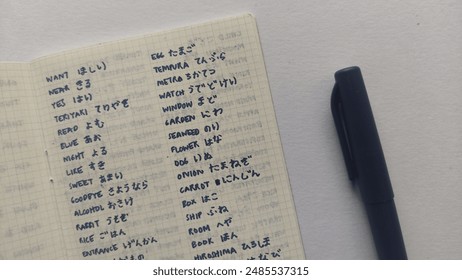 WANT ほしい
WEAR きる
YES はい
TERIYAKI てりやき
READ よむ
BLUE あお
NIGHT よる
LIKE すき
SWEET あまい
GOODBYE さようなら
ALCOHOL おさけ
RABBIT うさぎ
RICE ごはん
ENTRANCE げんかん
EGG たまご
TEMPURA てんぷら
METRO ちかてつ
WATCH うでどけい
WINDOW まど
GARDEN にわ
SEAWEED のり
FLOWER はな
DOG いぬ
ONION たまねぎ
CARROT にんじん
BOX はこ
SHIP ふね
ROOM へや
BOOK ほん
HIROSHIMA ひろしま
shutterstock.com · 2485537315